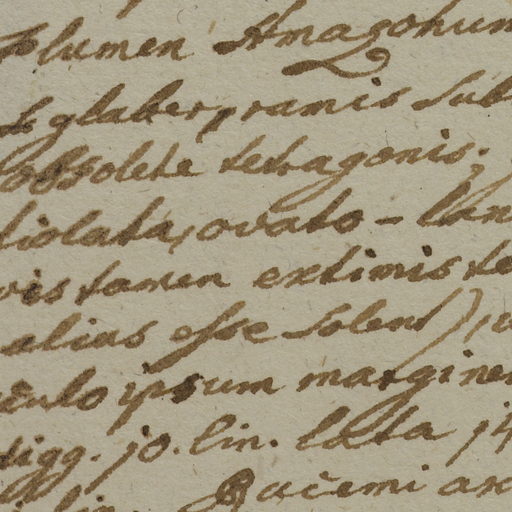 Flumen Amazonum
glaber, ramis sub
obsolete tetragonis;
tiolata, ovato-lan
vis tamen extimis te
alias esse solent)
culo ipsum marginem
digg. jo. lin. lata j4
Racemi ax